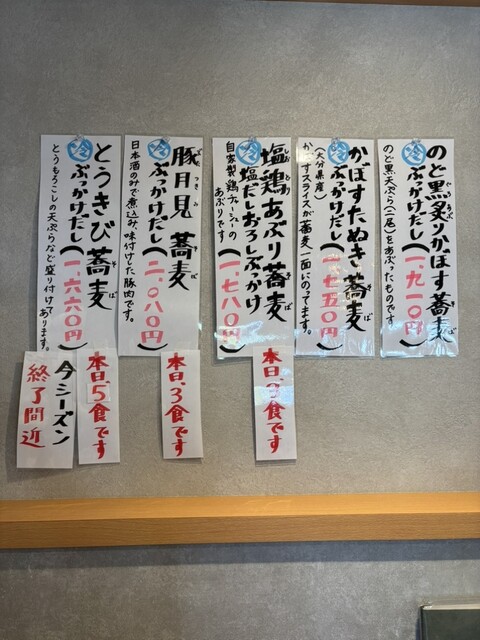 のど黒炙りかぼす蕎麦
冷 ぶっかけだし(一、九一〇円)
のど黒天ぷら(二尾)をあぶったものです。
かぼすたぬき蕎麦
冷 ぶっかけだし(一、七五〇円)
(大分県産)
かぼすスライスが蕎麦一面にのってます。
塩鶏あぶり蕎麦
冷 塩だしおろしぶっかけ(一、七八〇円)
自家製鶏チャーシューの
あぶりです。
本日、3食です
豚月見蕎麦
冷 ぶっかけだし(二、〇八〇円)
日本酒のみで煮込み、味付けした豚肉です。
本日、3食です
とうきび蕎麦
冷 ぶっかけだし(一、六六〇円)
とうもろこしの天ぷらなど盛り付けてあります。
本日5食です
今シーズン
終了間近